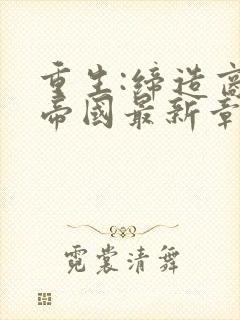 重生:缔造商
帝國最新章
霓裳清舞